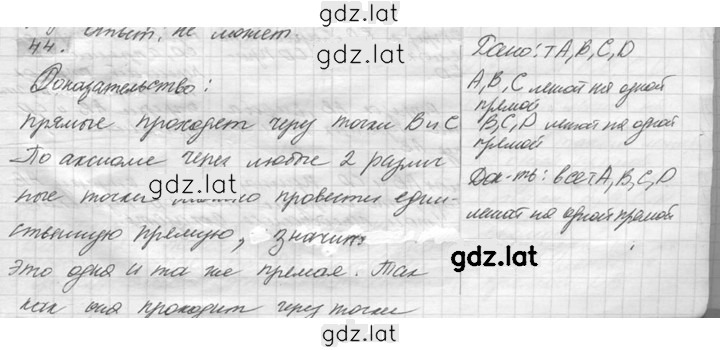 gdz.lat
ответ: не может.
44.
Доказательство:
прямые проходят через точки В и С
По аксиоме через любые 2 различ
ные точки можно провести един-
ственную прямую, значит
это одна и та же прямая. Так
как она проходит через точки
Дано: т A, B, C, D
A, B, C лежат на одной
прямой
B, C, D лежат на одной
прямой
Док-ть: все т A, B, C, D
лежат на одной прямой
gdz.lat
gdz.lat
gdz.lat
gdz.lat